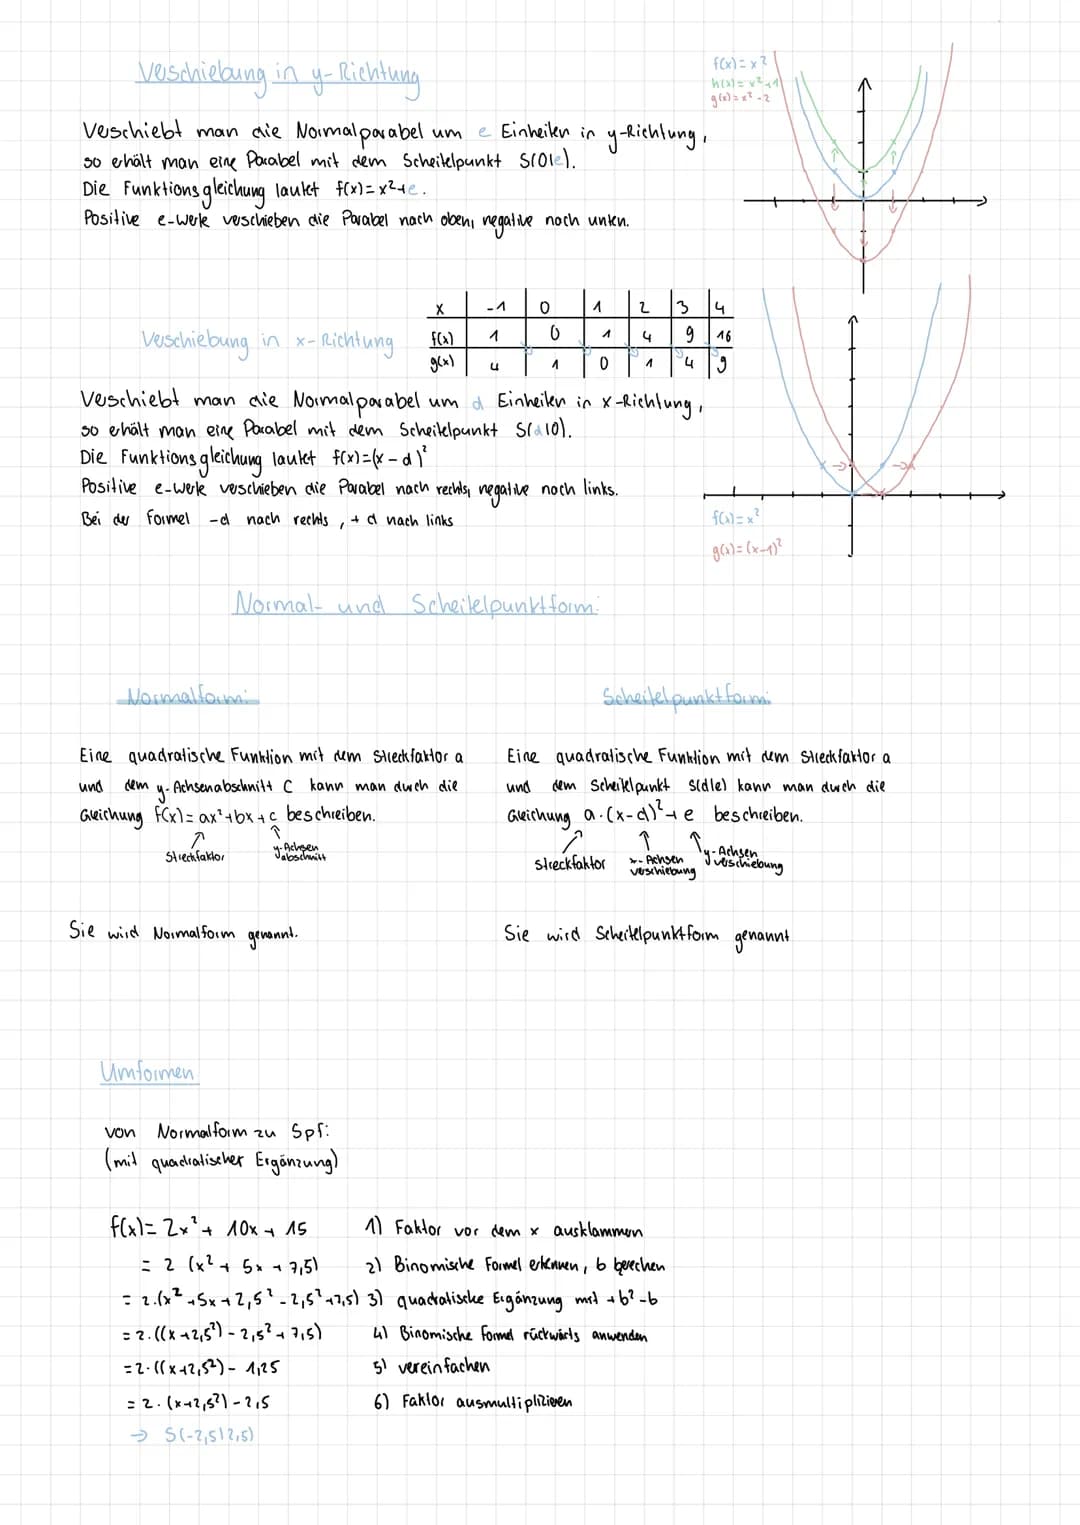 Verschiebung in y-Richtung
f(x)=x²
h(x)=x²+1
g(x)=x²-2
Verschiebt man die Normalparabel um e Einheiten in y-Richtung,
so erhält man eine Parabel mit dem Scheitelpunkt S(0|e).
Die Funktionsgleichung lautet f(x)=x²+e.
Positive e-Werte verschieben die Parabel nach oben, negative nach unten.
x -1 0 1 2 3 4
f(x) 1 0 1 4 9 16
g(x) 4 1 0 1 4 9
Verschiebung in x-Richtung
Verschiebt man die Normalparabel um d Einheiten in x-Richtung,
so erhält man eine Parabel mit dem Scheitelpunkt S(d|0).
Die Funktionsgleichung lautet f(x)=(x-d)²
Positive e-Werte verschieben die Parabel nach rechts, negative nach links.
Bei der Formel -d nach rechts, +d nach links
f(x)=x²
g(x)=(x-1)²
Normal- und Scheitelpunktform:
Normalform:
Eine quadratische Funktion mit dem Streckfaktor a
und dem y-Achsenabschnitt C kann man durch die
Gleichung f(x)=ax²+bx+c beschreiben.
Streckfaktor
y-Achsen
abschnitt
Sie wird Normalform genannt.
Scheitelpunktform:
Eine quadratische Funktion mit dem Streckfaktor a
und dem Scheitelpunkt S(d|e) kann man durch die
Gleichung a·(x-d)²+e beschreiben.
Streckfaktor
x-Achsen
verschiebung
y-Achsen
verschiebung
Sie wird Scheitelpunktform genannt
Umformen
von Normalform zu Spf:
(mit quadratischer Ergänzung)
f(x)= 2x²+ 10x + 15 1) Faktor vor dem x ausklammern
= 2 (x² + 5x + 7,5) 2) Binomische Formel erkennen, b berechen
= 2.(x² +5x + 2,5² - 2,5²+7,5) 3) quadratische Ergänzung mit +b² -b
= 2.((x+2,5²) - 2,5² + 7,5) 4) Binomische Formel rückwärts anwenden
=2·((x+2,5²) - 1,25 5) vereinfachen
= 2·(x+2,5²) - 2,5 6) Faktor ausmultiplizieren
→ S(-2,5|2,5)